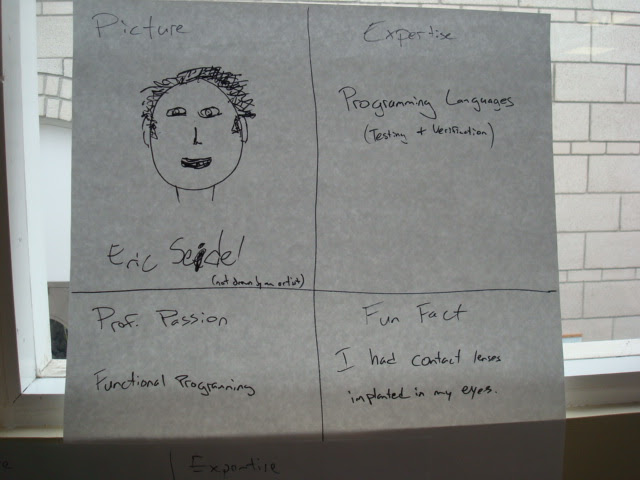 Picture
Eric Seidel
(not drawn by an artist)
Expertise
Programming Languages
(Testing + Verification)
Prof. Passion
Functional Programming
Fun Fact
I had contact lenses
implanted in my eyes.
Expertise